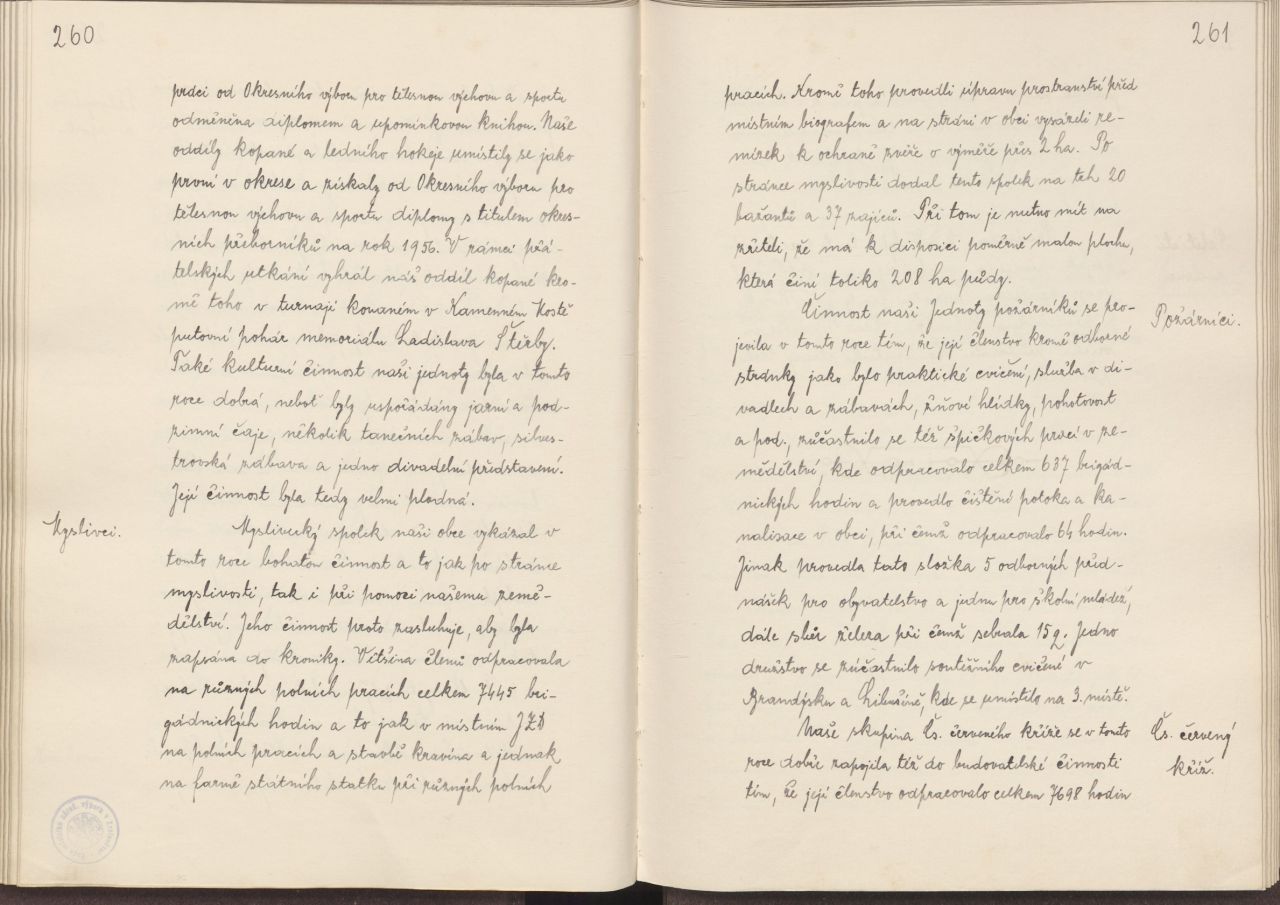 260
práci od Okresního výboru pro tělesnou výchovu a sportu
odměněna diplomem a upomínkovou knihou. Naše
oddíly kopané a ledního hokeje umístily se jako
první v okrese a získaly od Okresního výboru pro
tělesnou výchovu a sportu diplomy s titulem okres-
ních přeborníků na rok 1956. V rámci přá-
telských utkání vyhrál náš oddíl kopané kro-
mě toho v turnaji konaném v Kamenném Mostě
putovní pohár memoriálu Ladislava Štěrby.
Také kulturní činnost naší jednoty byla v tomto
roce dobrá, neboť byly uspořádány jarní a pod-
zimní čaje, několik tanečních zábav, silves-
trovská zábava a jedno divadelní představení.
Její činnost byla tedy velmi plodná.
Myslivci.
Myslivecký spolek naší obce vykázal v
tomto roce bohatou činnost a to jak po stránce
myslivosti, tak i při pomoci našemu země-
dělství. Jeho činnost proto zasluhuje, aby byla
zapsána do kroniky. Většina členů odpracovala
na různých polních pracích celkem 7445 bri-
gádnických hodin a to jak v místním JZD
na polních pracích a stavbě kravína a jednak
na farmě státního statku při různých polních
261
pracích. Kromě toho provedli úpravu prostranství před
místním biografem a na stráni v obci vysázeli re-
mízek k ochraně zvěře o výměře přes 2 ha. Po
stránce myslivosti dodal tento spolek na trh 20
bažantů a 37 zajíců. Při tom je nutno mít na
zřeteli, že má k disposici poměrně malou plochu,
která činí toliko 208 ha půdy.
Požárníci.
Činnost naší Jednoty požárníků se pro-
jevila v tomto roce tím, že její členstvo kromě odborné
stránky jako bylo praktické cvičení, služba v di-
vadlech a zábavách, žňové hlídky, pohotovost
a pod., zúčastnilo se též špičkových prací v ze-
mědělství, kde odpracovalo celkem 637 brigád-
nických hodin a provedlo čištění potoka a ka-
nalisace v obci, při čemž odpracovalo 64 hodin.
Jinak provedla tato složka 5 odborných před-
nášek pro obyvatelstvo a jednu pro školní mládež,
dále sběr železa při čemž sebrala 15 q. Jedno
družstvo se zúčastnilo soutěžního cvičení v
Brandýsku a Libušíně, kde se umístilo na 3. místě.
Čs. červený
kříž.
Naše skupina Čs. červeného kříže se v tomto
roce dobře zapojila též do budovatelské činnosti
tím, že její členstvo odpracovalo celkem 7698 hodin